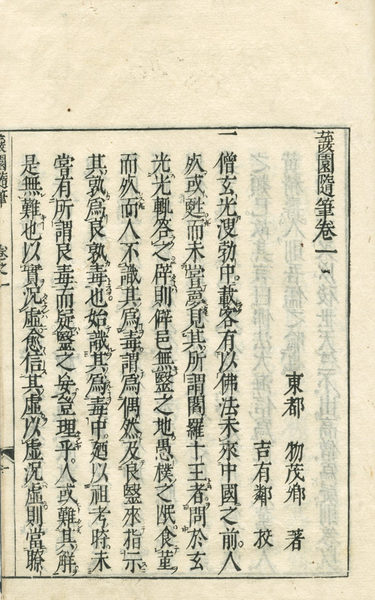 蘐園隨筆卷一
東都 物茂卿 著
吉有鄰 校
一
僧玄光溲勃中載客有以佛法未來中國之前人
死或甦而未嘗夢見其所謂閻羅十王者問於玄
光光輙答之辟則僻邑無毉之地愚樸之氓食菫
而死而人不識其爲毒謂爲偶然及良毉來指示
其孰爲良孰毒也始識其爲毒中廼以祖考時未
嘗有所謂良毒而疑毉之妄豈理乎人或難其觧
是無難也以實況虛愈信其虛以虛況虛則當瞭
蘐園隨筆 卷之一